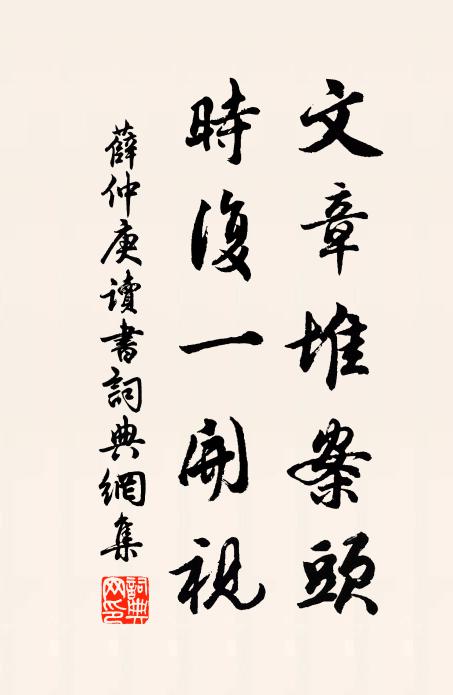 文章堆案頭
時復一開視
薛仲庚讀書詞典網集
詞典网印